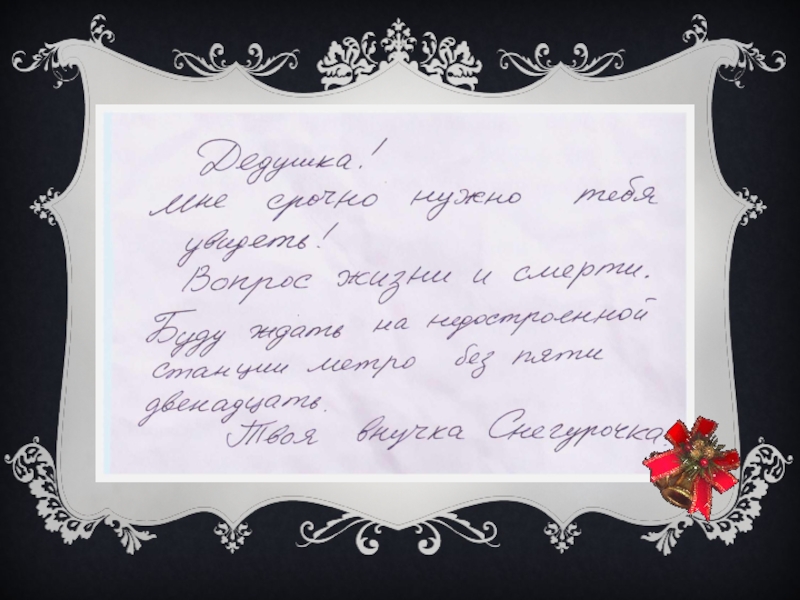 Дедушка!
Мне срочно нужно тебя
увидеть!
Вопрос жизни и смерти.
Буду ждать на недостроенной
станции метро без пяти
двенадцать.
Твоя внучка Снегурочка.